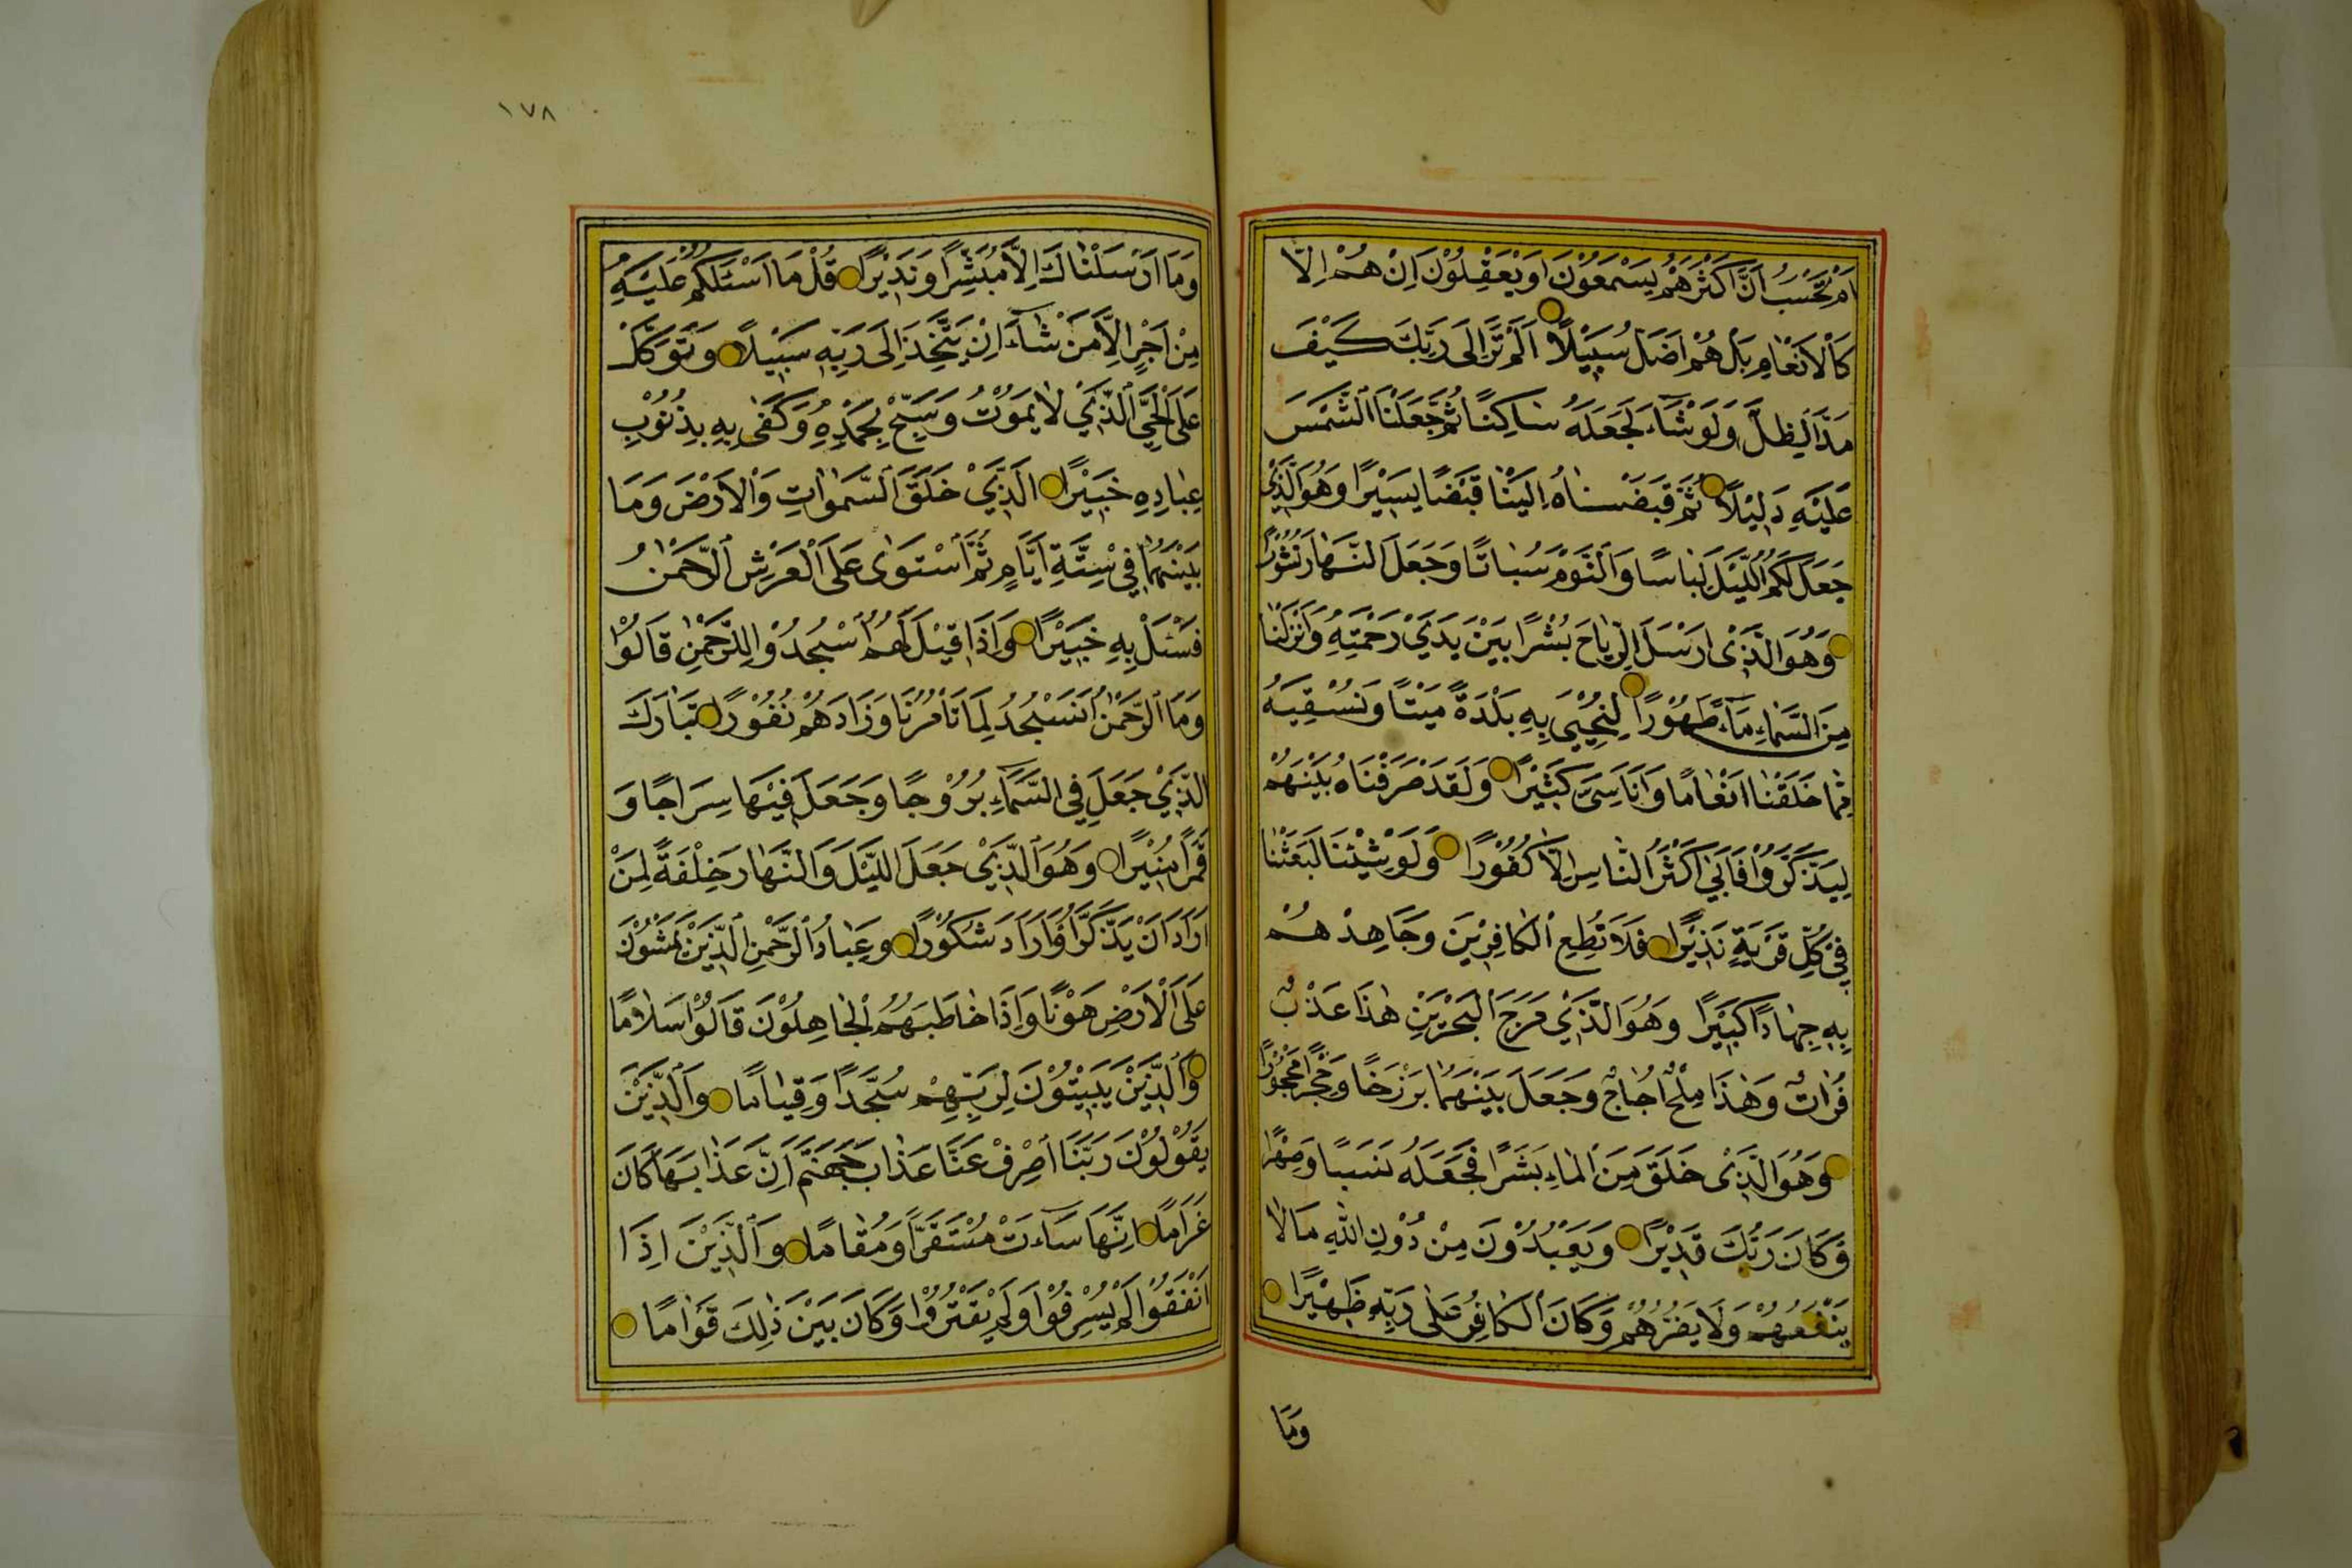 اَمْ تَحْسَبُ اَنَّ اَكْثَرَهُمْ يَسْمَعُوْنَ اَوْ يَعْقِلُوْنَ اِنْ هُمْ اِلَّا
كَالْاَنْعَامِ بَلْ هُمْ اَضَلُّ سَبِيْلًا اَلَمْ تَرَ اِلٰى رَبِّكَ كَيْفَ
مَدَّ الظِّلَّ وَلَوْ شَآءَ لَجَعَلَهُ سَاكِنًا ثُمَّ جَعَلْنَا الشَّمْسَ
عَلَيْهِ دَلِيْلًا ثُمَّ قَبَضْنَاهُ اِلَيْنَا قَبْضًا يَسِيْرًا وَهُوَ الَّذِيْ
جَعَلَ لَكُمُ اللَّيْلَ لِبَاسًا وَالنَّوْمَ سُبَاتًا وَجَعَلَ النَّهَارَ نُشُوْرًا
وَهُوَ الَّذِيْ اَرْسَلَ الرِّيَاحَ بُشْرًا بَيْنَ يَدَيْ رَحْمَتِهِ وَاَنْزَلْنَا
مِنَ السَّمَاءِ مَآءً طَهُوْرًا لِنُحْيِيَ بِهِ بَلْدَةً مَيْتًا وَنُسْقِيَهُ
مِمَّا خَلَقْنَا اَنْعَامًا وَاَنَاسِيَّ كَثِيْرًا وَلَقَدْ صَرَّفْنَاهُ بَيْنَهُمْ
لِيَذَّكَّرُوْا فَاَبٰى اَكْثَرُ النَّاسِ اِلَّا كُفُوْرًا وَلَوْ شِئْنَا لَبَعَثْنَا
فِيْ كُلِّ قَرْيَةٍ نَذِيْرًا فَلَا تُطِعِ الْكَافِرِيْنَ وَجَاهِدْهُمْ
بِهِ جِهَادًا كَبِيْرًا وَهُوَ الَّذِيْ مَرَجَ الْبَحْرَيْنِ هٰذَا عَذْبٌ
فُرَاتٌ وَهٰذَا مِلْحٌ اُجَاجٌ وَجَعَلَ بَيْنَهُمَا بَرْزَخًا وَحِجْرًا مَحْجُوْرًا
وَهُوَ الَّذِيْ خَلَقَ مِنَ الْمَاءِ بَشَرًا فَجَعَلَهُ نَسَبًا وَصِهْرًا
وَكَانَ رَبُّكَ قَدِيْرًا وَيَعْبُدُوْنَ مِنْ دُوْنِ اللّٰهِ مَالَا
يَنْفَعُهُمْ وَلَا يَضُرُّهُمْ وَكَانَ الْكَافِرُ عَلٰى رَبِّهِ ظَهِيْرًا
وَمَا
١٧٨
وَمَا اَرْسَلْنَاكَ اِلَّا مُبَشِّرًا وَنَذِيْرًا قُلْ مَا اَسْئَلُكُمْ عَلَيْهِ
مِنْ اَجْرٍ اِلَّا مَنْ شَآءَ اَنْ يَتَّخِذَ اِلٰى رَبِّهِ سَبِيْلًا وَتَوَكَّلْ
عَلَى الْحَيِّ الَّذِيْ لَا يَمُوْتُ وَسَبِّحْ بِحَمْدِهِ وَكَفٰى بِهِ بِذُنُوْبِ
عِبَادِهِ خَبِيْرًا الَّذِيْ خَلَقَ السَّمٰوَاتِ وَالْاَرْضَ وَمَا
بَيْنَهُمَا فِيْ سِتَّةِ اَيَّامٍ ثُمَّ اسْتَوٰى عَلَى الْعَرْشِ الرَّحْمٰنُ
فَسْئَلْ بِهِ خَبِيْرًا وَاِذَا قِيْلَ لَهُمُ اسْجُدُوْا لِلرَّحْمٰنِ قَالُوْا
وَمَا الرَّحْمٰنُ اَنَسْجُدُ لِمَا تَأْمُرُنَا وَزَادَهُمْ نُفُوْرًا تَبَارَكَ
الَّذِيْ جَعَلَ فِي السَّمَآءِ بُرُوْجًا وَجَعَلَ فِيْهَا سِرَاجًا وَ
قَمَرًا مُنِيْرًا وَهُوَ الَّذِيْ جَعَلَ اللَّيْلَ وَالنَّهَارَ خِلْفَةً لِمَنْ
اَرَادَ اَنْ يَذَّكَّرَ اَوْ اَرَادَ شُكُوْرًا وَعِبَادُ الرَّحْمٰنِ الَّذِيْنَ يَمْشُوْنَ
عَلَى الْاَرْضِ هَوْنًا وَاِذَا خَاطَبَهُمُ الْجَاهِلُوْنَ قَالُوْا سَلَامًا
وَالَّذِيْنَ يَبِيْتُوْنَ لِرَبِّهِمْ سُجَّدًا وَقِيَامًا وَالَّذِيْنَ
يَقُوْلُوْنَ رَبَّنَا اصْرِفْ عَنَّا عَذَابَ جَهَنَّمَ اِنَّ عَذَابَهَا كَانَ
غَرَامًا اِنَّهَا سَآءَتْ مُسْتَقَرًّا وَمُقَامًا وَالَّذِيْنَ اِذَا
اَنْفَقُوْا لَمْ يُسْرِفُوْا وَلَمْ يَقْتُرُوْا وَكَانَ بَيْنَ ذٰلِكَ قَوَامًا